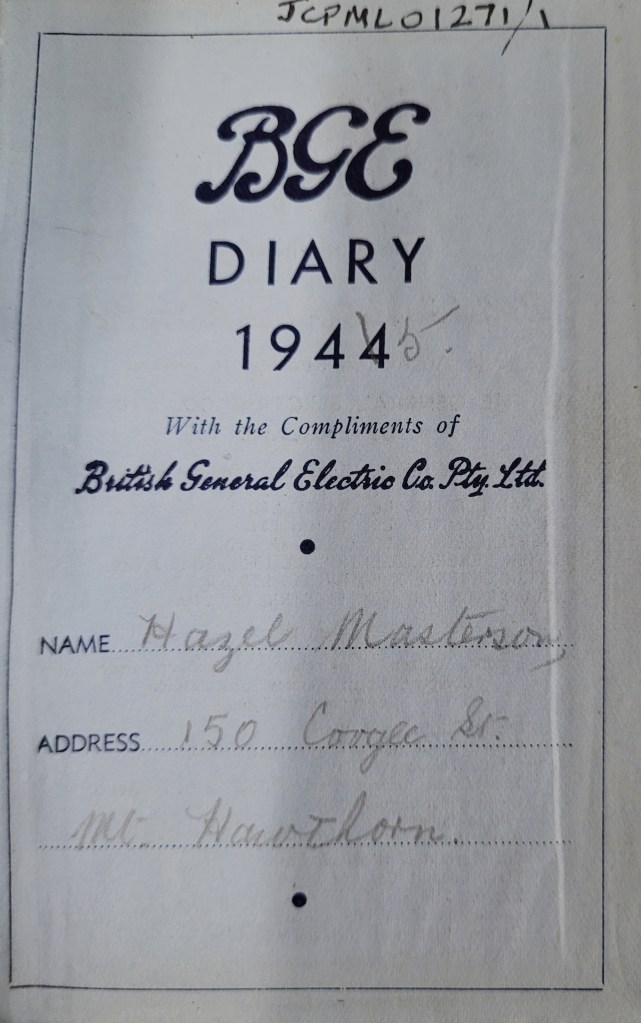 JCPML01271/1
BGE
DIARY
1944 5.
With the Compliments of
British General Electric Co. Pty. Ltd.
NAME Hazel Masterson,
ADDRESS 150 Coogee St.
Mt. Hawthorn.